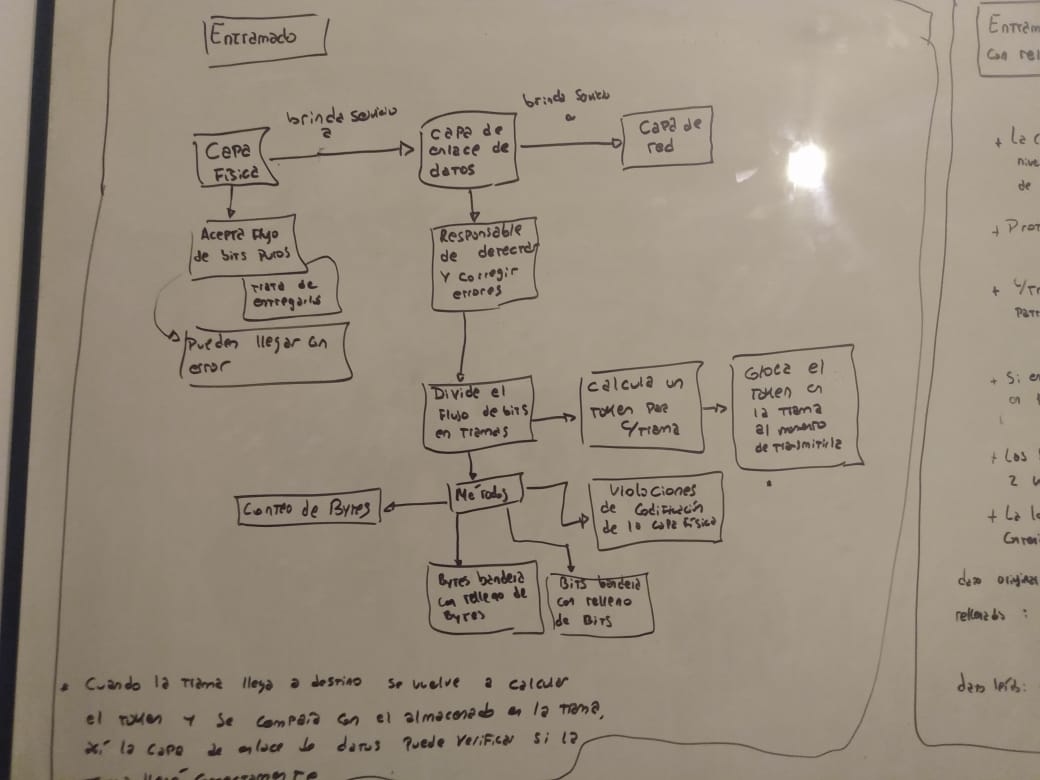 Entramado
Capa
Física
brinda servicio
a
Capa de
enlace de
datos
brinda servicio
a
Capa de
red
Acepta flujo
de bits puros
trata de
entregarlos
Pueden llegar con
error
Responsable
de detectar
y corregir
errores
Divide el
Flujo de bits
en tramas
Calcula un
token por
c/trama
Coloca el
token en
la trama
al momento
de transmitirla
Métodos
Conteo de Bytes
Violaciones
de codificación
de la capa física
Bytes bandera
con relleno de
Bytes
Bits bandera
con relleno
de Bits
* Cuando la trama llega a destino se vuelve a calcular
el token y se compara con el almacenado en la trama,
así la capa de enlace de datos puede verificar si la
llegó correctamente
Entram
con rel
+ La c
nive
de
+ Prot
+ c/tr
+ Si
+ Los
2
+ La lo
dato origina
rellenado :
dato leído: